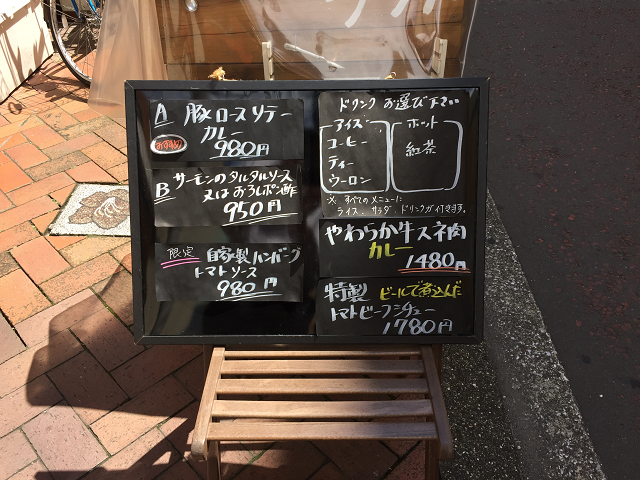 A 豚ロースソテー
おすすめ
カレー 980円
B サーモンのタルタルソース
又はおろしポン酢
950円
限定 自家製ハンバーグ
トマトソース
980円
ドリンク お選び下さい
アイス
コーヒー
ティー
ウーロン
ホット
紅茶
※ すべてのメニューに
ライス、サラダ、ドリンク付きます。
やわらか牛スネ肉
カレー
1480円
特製 ビールで煮込んだ
トマトビーフシチュー
1780円